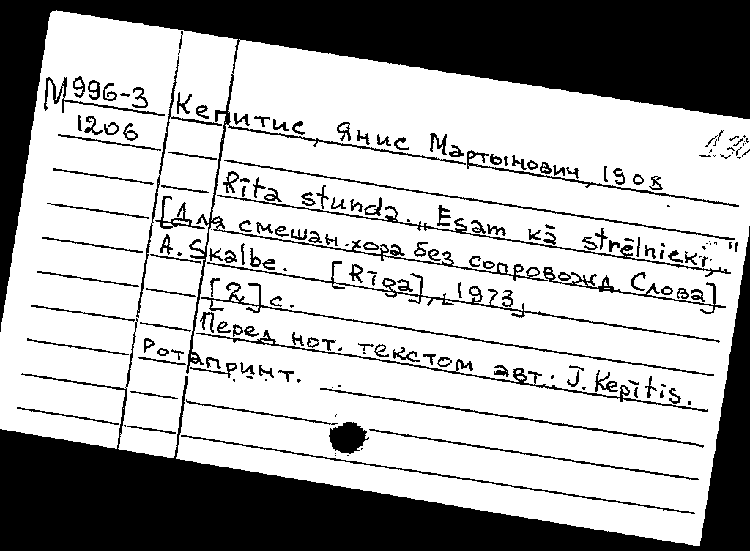 М 996-3
1206
Кепитис, Янис Мартынович, 1908
130
Rīta stunda. „Esam kā strēlnieki„..."
[Для смешан. хора без сопровожд. Слова]
A. Skalbe. [Rīga], [1973]
[2] с.
Перед нот. текстом авт.: J. Ķepītis.
Ротапринт.